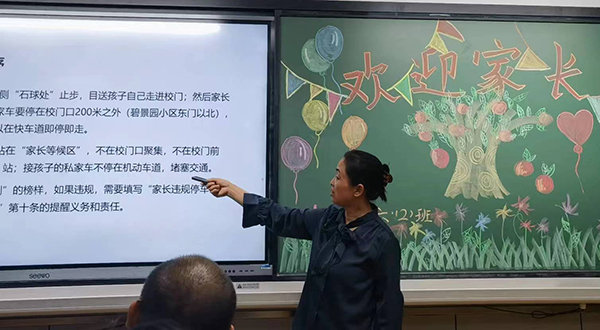 侧“石球处”止步，目送孩子自己走进校门；然后家长
家车要停在校门口200米之外（碧景园小区东门以北），
以在快车道即停即走。
站在“家长等候区”，不在校门口聚集，不在校门前
站；接孩子的私家车不停在机动车道，堵塞交通。
则”的榜样，如果违规，需要填写“家长违规停车
”第十条的提醒义务和责任。
seewo
欢迎家长
六(2)班